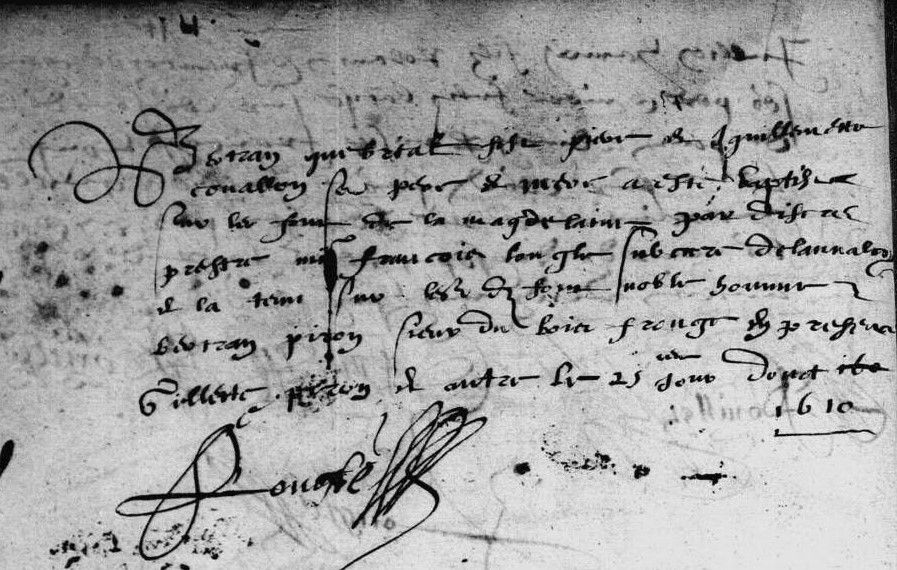 Bertran quebriak filz pierre & guillemette
couallon ses pere & mere a esté baptisé
sur les fons de la magdelaine par discret
prestre mis françois longle subcuré de lannalec
& la tenu sur lesd fons noble homme
bertran piron sieur du bois frouge en presence
Gillette piron & autre le 25 jour doust
1610